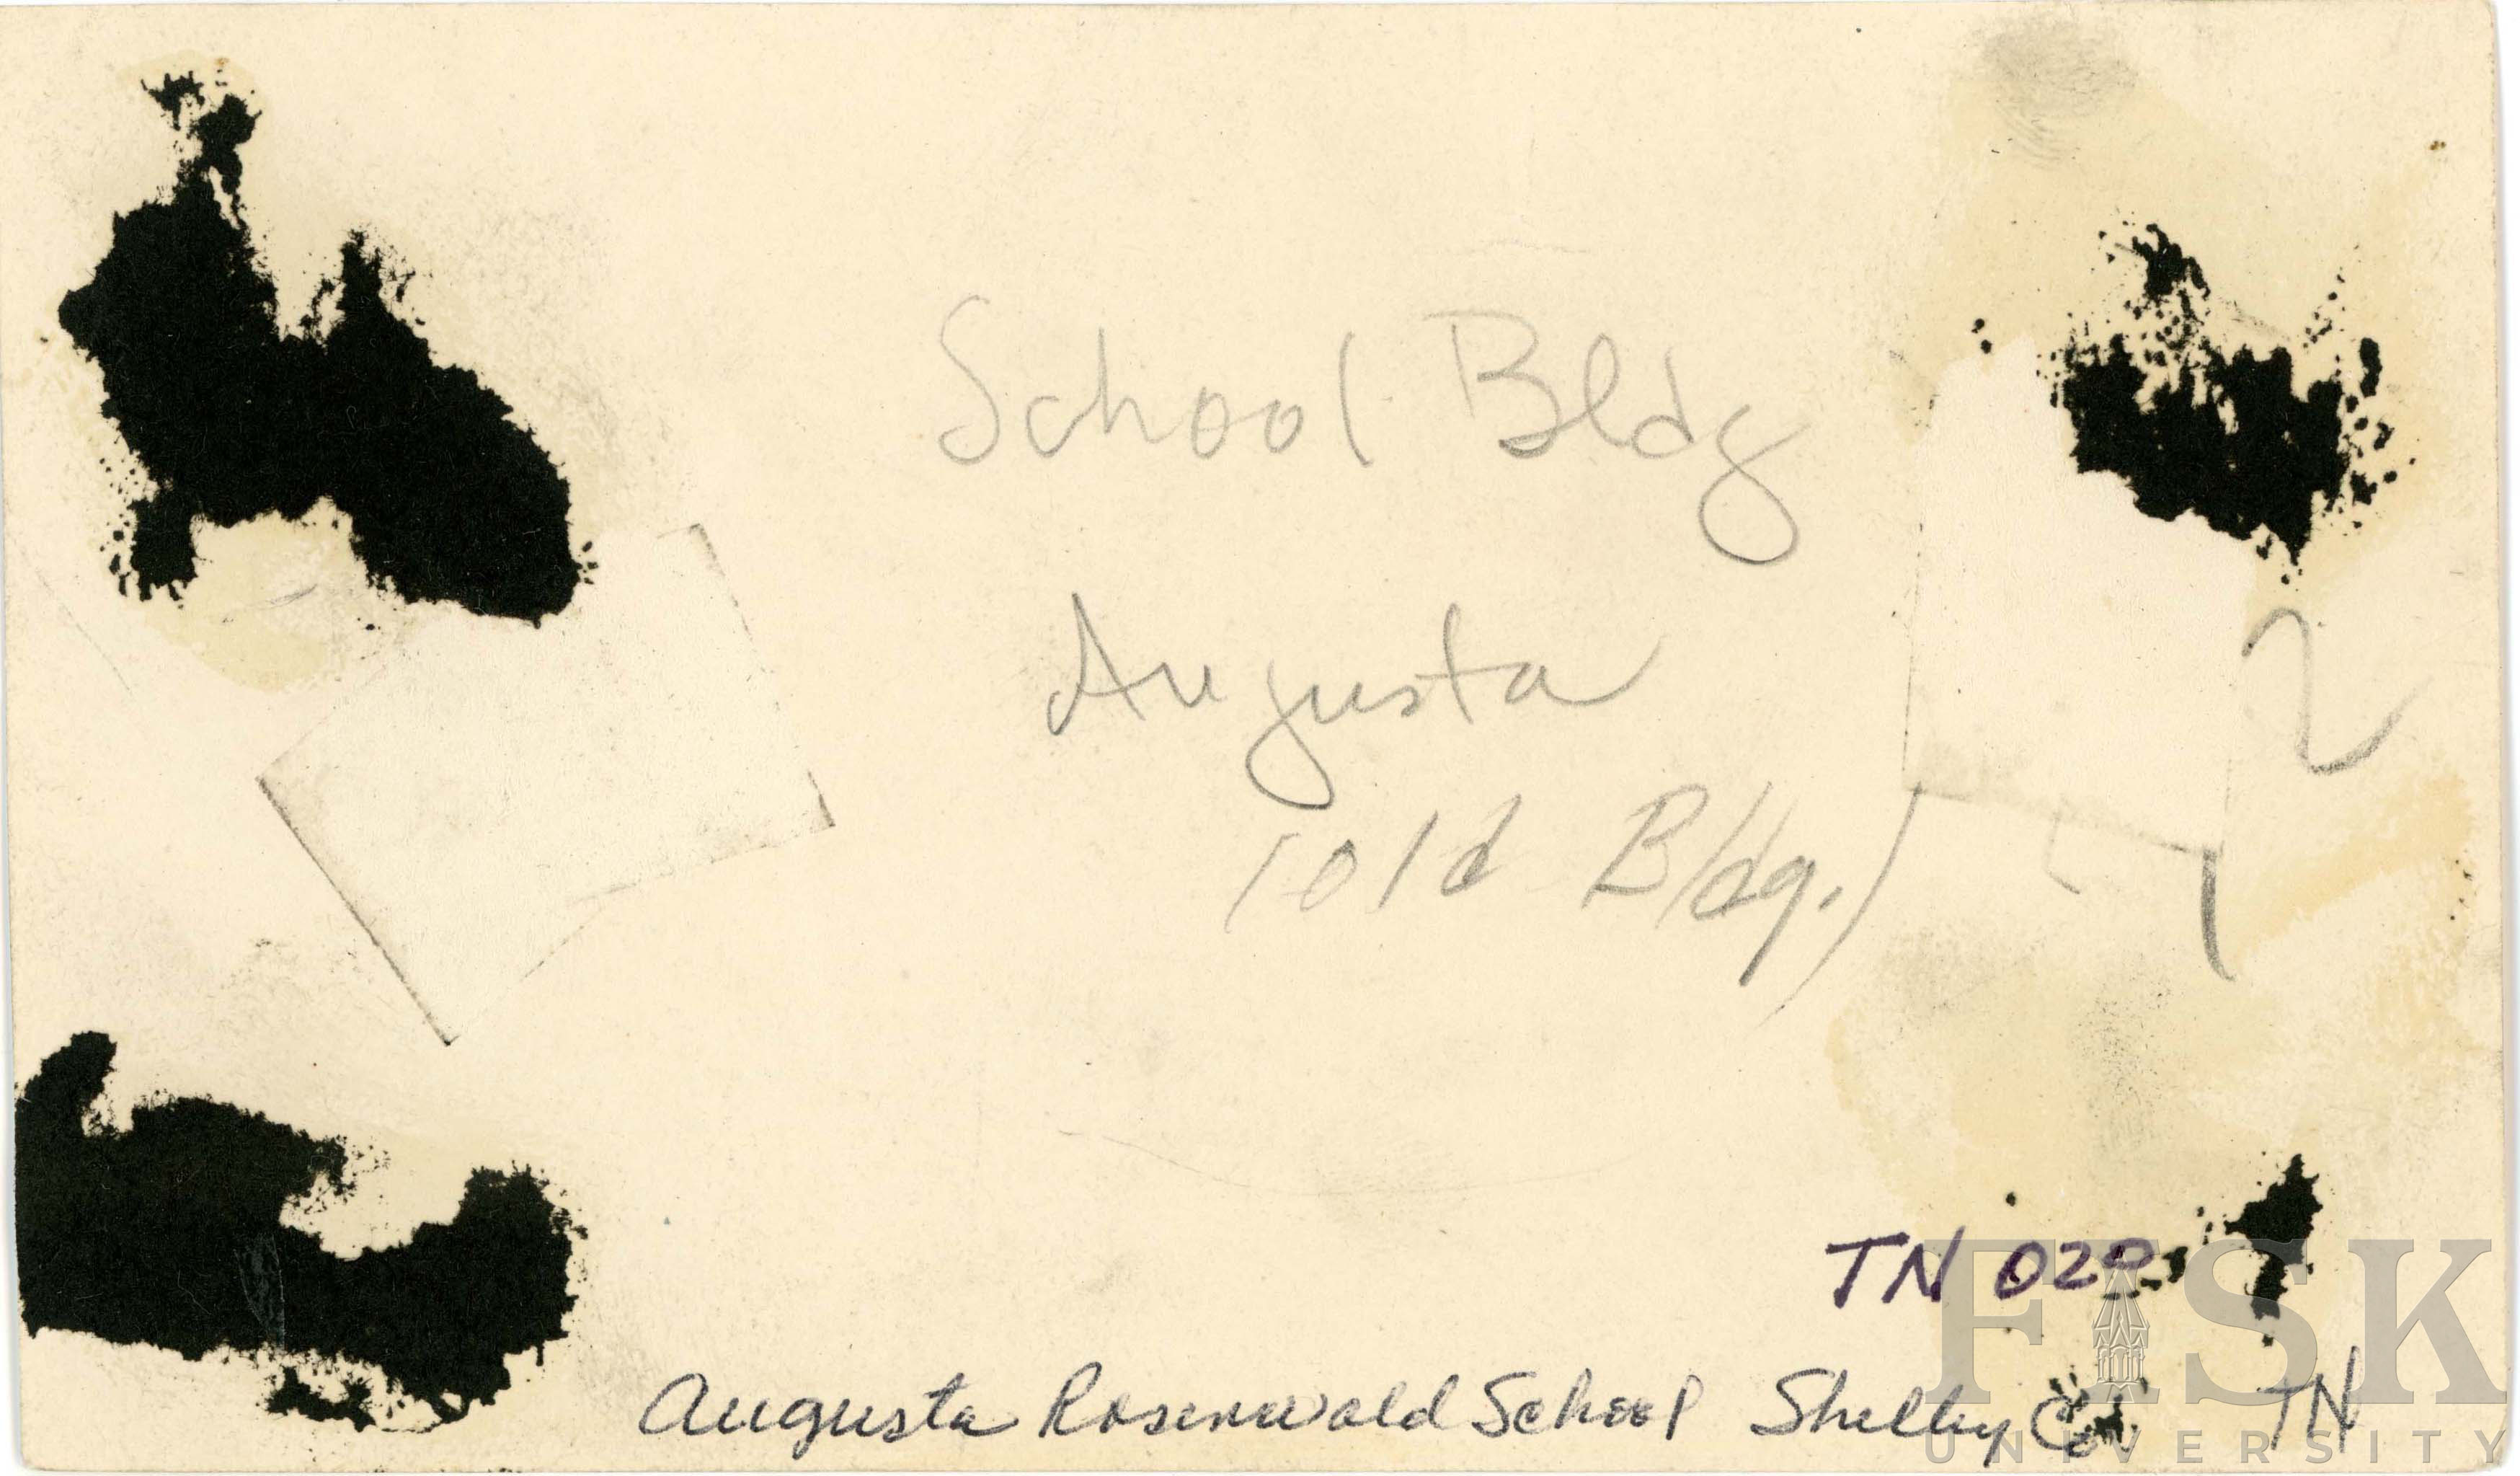 School Bldg
Augusta
(old Bldg.)
2
TN 020
Augusta Rosenwald School Shelby Co TN
FISK
UNIVERSITY